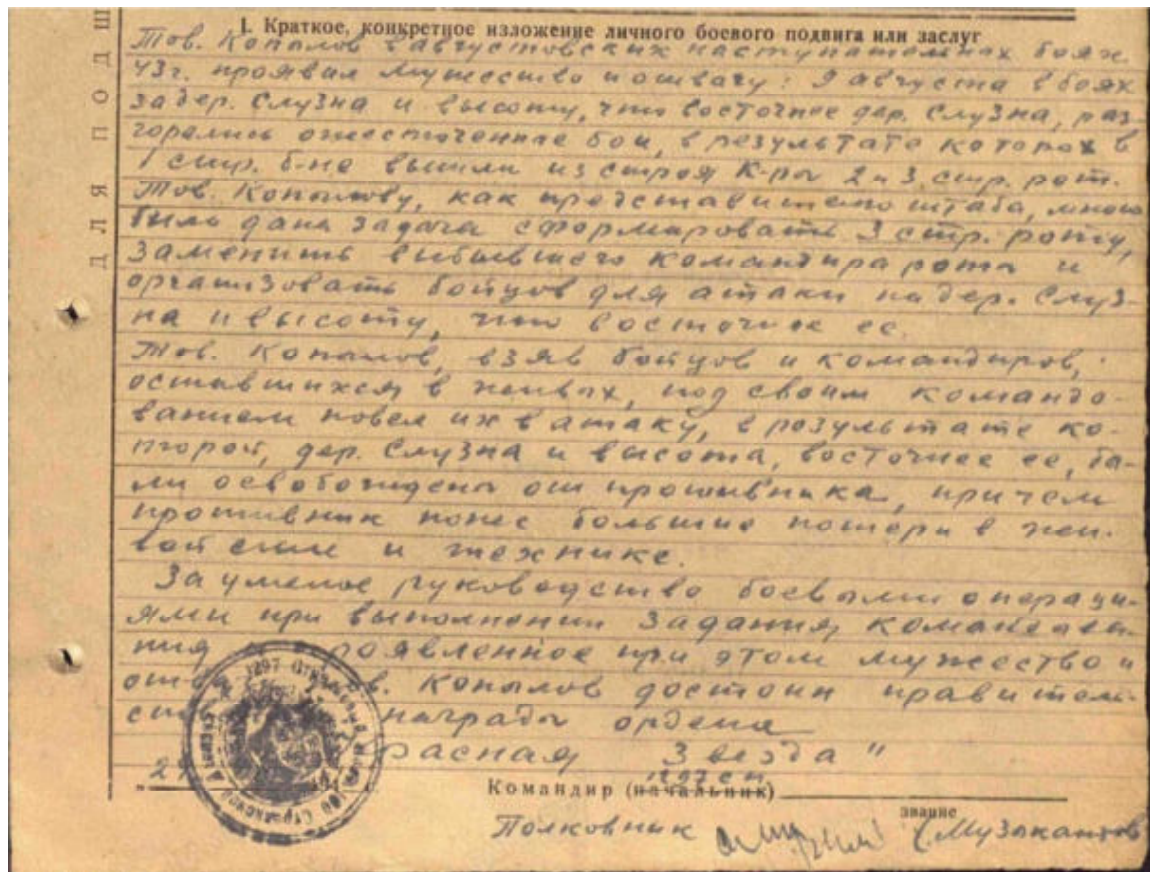 I. Краткое, конкретное изложение личного боевого подвига или заслуг
Тов. Копылов в августовских наступательных боях
43г. проявил мужество и отвагу: 9 августа в боях
за дер. Слузна и высоту, что восточнее дер. Слузна, раз-
горелись ожесточенные бои, в результате которых в
1 стр. б-не вышли из строя К-ры 2 и 3 стр. рот.
Тов. Копылову, как представителю штаба, мною
была дана задача сформировать 3 стр. роту,
заменить выбывшего командира роты и
организовать бойцов для атаки на дер. Слуз-
на и высоту, что восточнее ее.
Тов. Копылов, взяв бойцов и командиров,
оставшихся в живых, под своим командо-
ванием повел их в атаку, в результате ко-
торой, дер. Слузна и высота, восточнее ее, бы-
ли освобождены от противника, причем
противник понес большие потери в жи-
вой силе и технике.
За умелое руководство боевыми операци-
ями при выполнении задания командова-
ния и проявленное при этом мужество и
Копылов достоин правитель-
награды ордена
расная Звезда"
1297 сп
Командир (начальник)
звание
Полковник (Музыкантов
ДЛЯ ПОДШ
1297